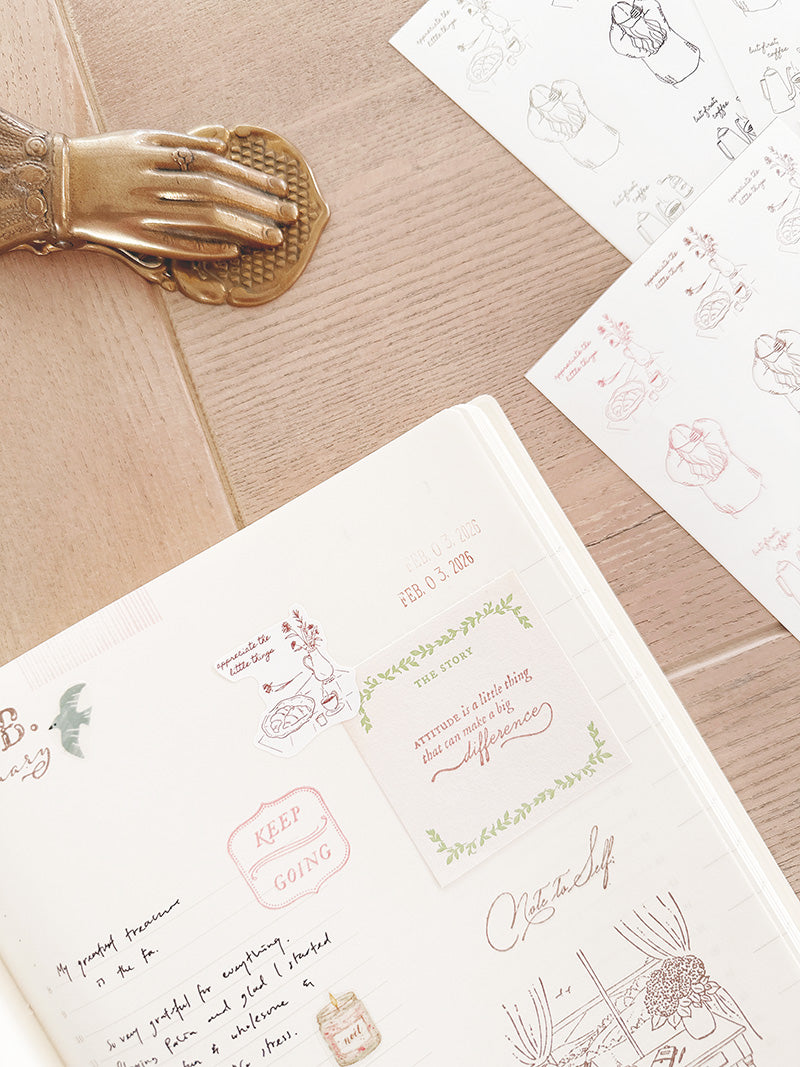 appreciate the
little things
let's first
coffee
let's first
coffee
let's first
coffee
appreciate the
little things
appreciate the
little things
appreciate the
little things
let's first
coffee
FEB. 03. 2026
FEB. 03. 2026
appreciate the
little things
THE STORY
ATTITUDE is a little thing
that can make a big
difference
KEEP
GOING
Note to Self:
My greatest treasure
is the
So very grateful for everything.
and glad I started
& wholesome &
stress.
noel